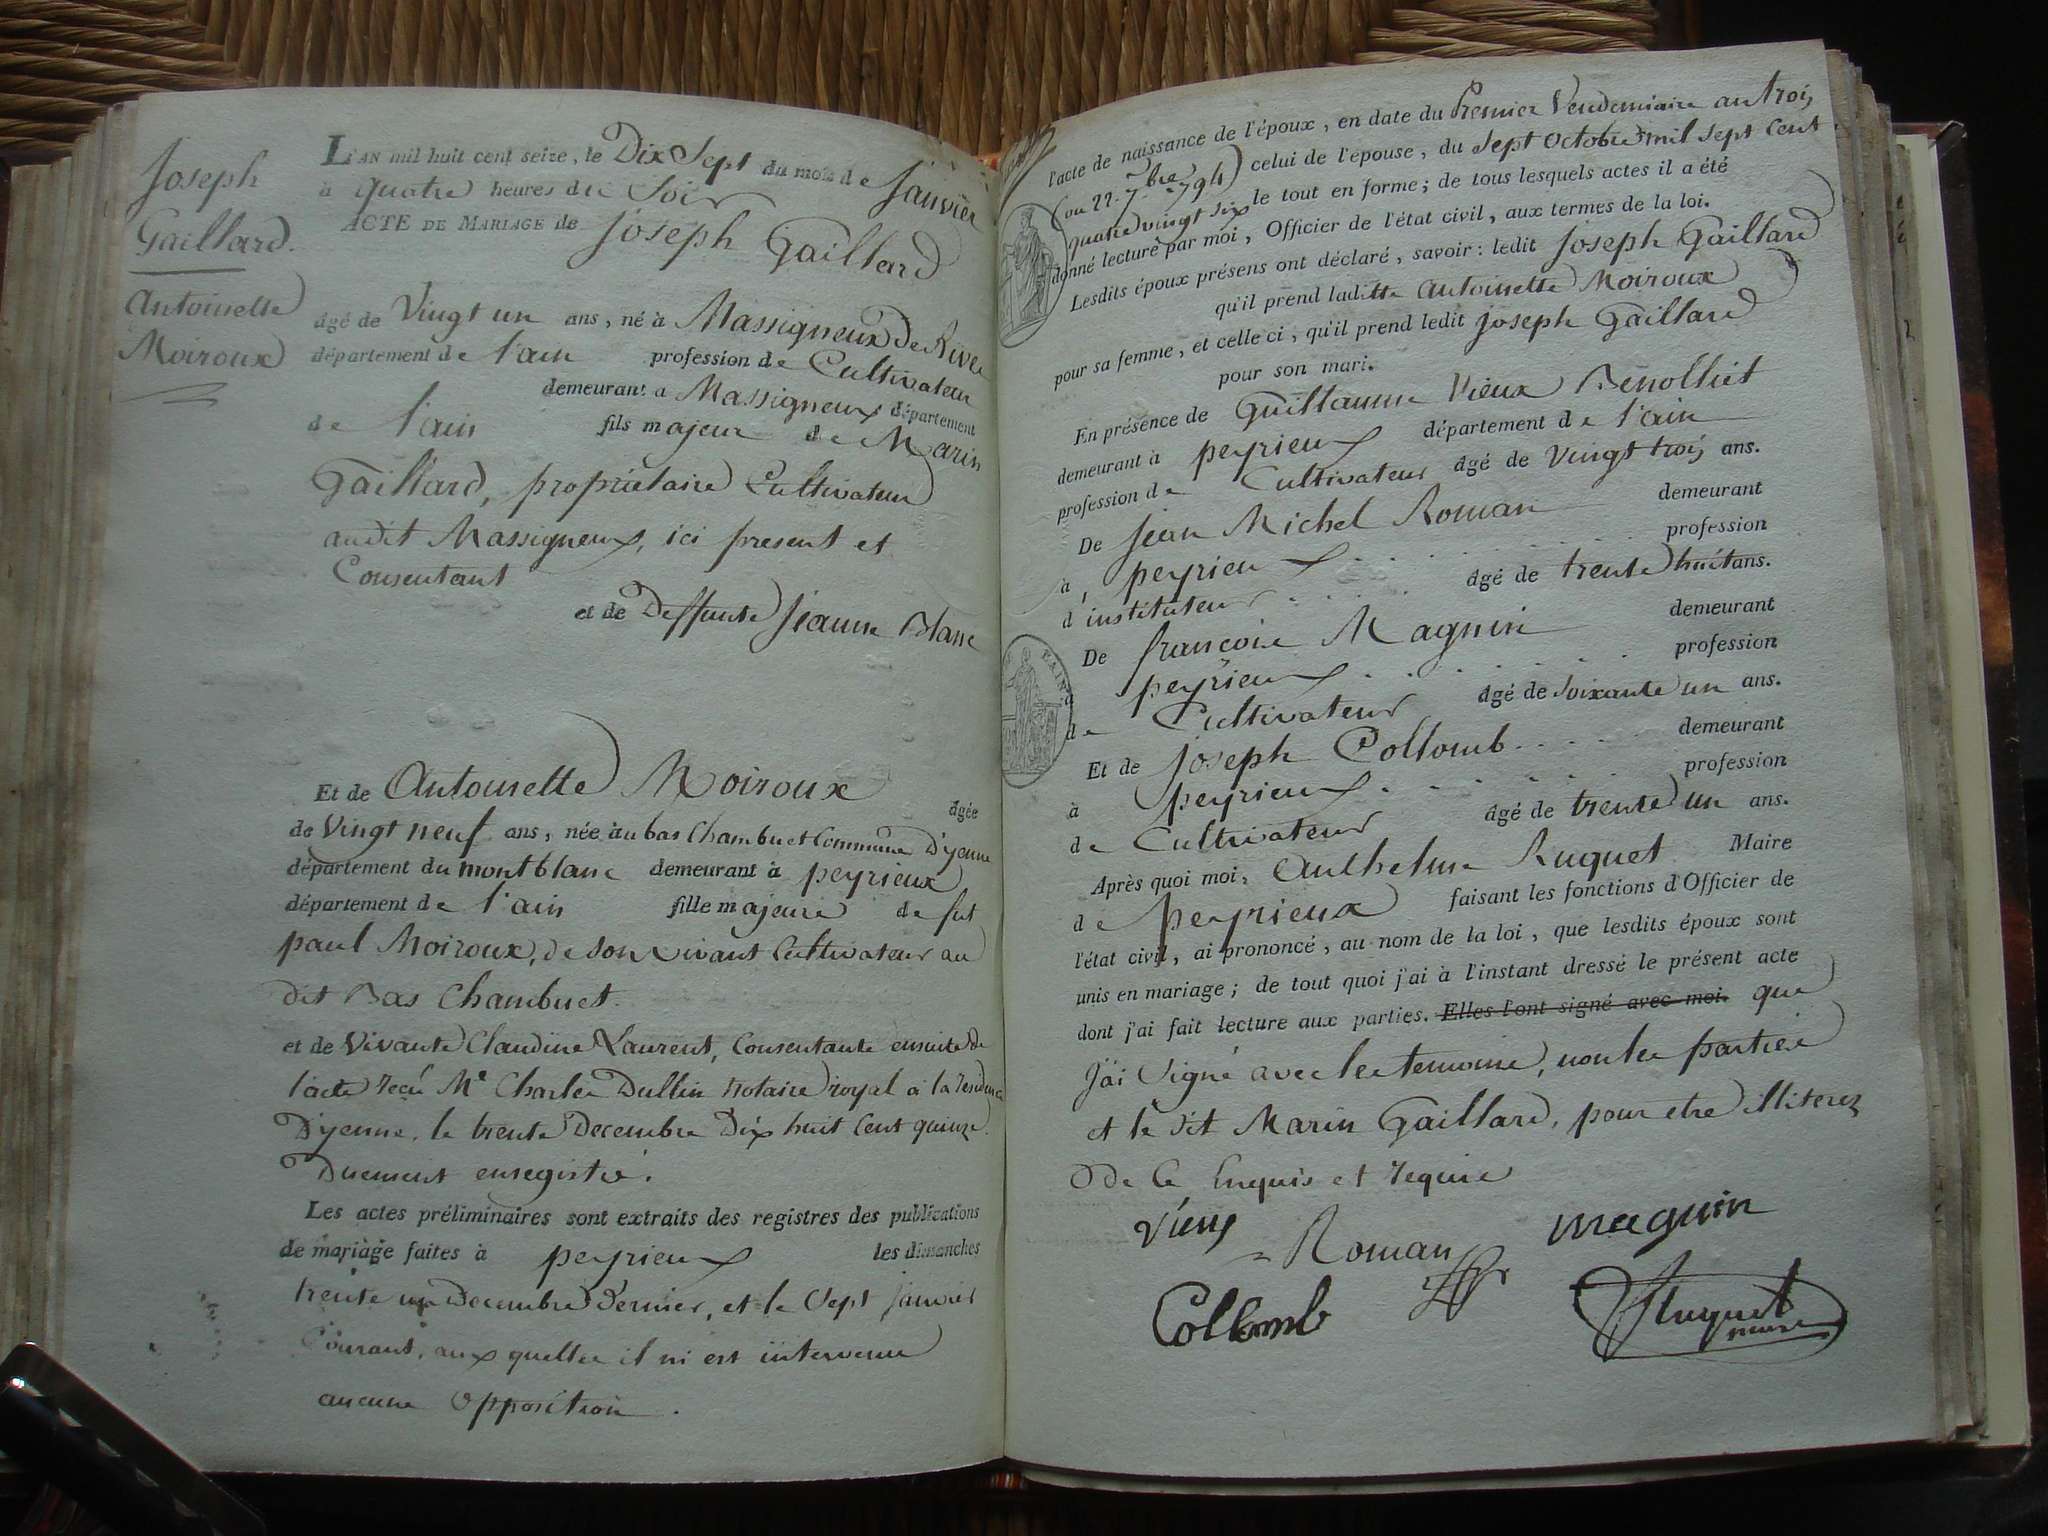 Joseph
Gaillard.
Antoinette
Moiroux
L'AN mil huit cent seize, le Dix Sept du mois de Janvier
à quatre heures du Soir
ACTE DE MARIAGE de Joseph Gaillard
âgé de Vingt un ans, né à Massigneux De Rives
département de l'ain profession de Cultivateur
demeurant a Massigneux département
de l'ain fils majeur de Marin
Gaillard, propriétaire Cultivateur
audit Massigneux, ici present et
Consentant
et de Deffunte Jeanne Blanc
Et de Antoinette Moiroux âgée
de Vingt neuf ans, née au bas Chambuet Commune D'yenne
département du montblanc demeurant à peyrieux
département de l'ain fille majeure de fut
paul Moiroux, de son vivant Cultivateur au
dit Bas Chambuet.
et de Vivante Claudine Laurent, Consentante ensuite de
l'acte reçu Me Charles Dullin notaire royal a la residence
D'yenne, le trente Decembre Dix huit Cent quinze.
Duement enregistré.
Les actes préliminaires sont extraits des registres des publications
de mariage faites à peyrieux les dimanches
trente un Decembre Dernier, et le Sept janvier
Courant, aux quelles il ni est intervenue
aucune Opposition.
l'acte de naissance de l'époux, en date du Premier Vendemiaire an trois
(ou 22 7bre 1794) celui de l'épouse, du Sept Octobre mil Sept Cent
quatre vingt six le tout en forme; de tous lesquels actes il a été
donné lecture par moi, Officier de l'état civil, aux termes de la loi.
Lesdits époux présens ont déclaré, savoir: ledit Joseph Gaillard
qu'il prend laditte Antoinette Moiroux
pour sa femme, et celle ci, qu'il prend ledit Joseph Gaillard
pour son mari.
En présence de Guillaume Vieux Benolliet
demeurant à peyrieux département de l'ain
profession de Cultivateur âgé de Vingt trois ans.
De Jean Michel Roman demeurant
à, peyrieux profession
d'instituteur âgé de trente huit ans.
De francois Magnin demeurant
peyrieux profession
de Cultivateur âgé de Soixante un ans.
Et de Joseph Collomb demeurant
à peyrieux profession
de Cultivateur âgé de trente un ans.
Après quoi moi, Anthelme Ruquet Maire
de peyrieux faisant les fonctions d'Officier de
l'état civil, ai prononcé, au nom de la loi, que lesdits époux sont
unis en mariage; de tout quoi j'ai à l'instant dressé le présent acte
dont j'ai fait lecture aux parties. Elles l'ont signé avec moi. que
J'ai Signé avec les temoins, non les parties
et le dit Marin Gaillard, pour etre illiterez
De Ce Enquis et requis
Vieux
Roman
magnin
Collomb
Ruquet
maire